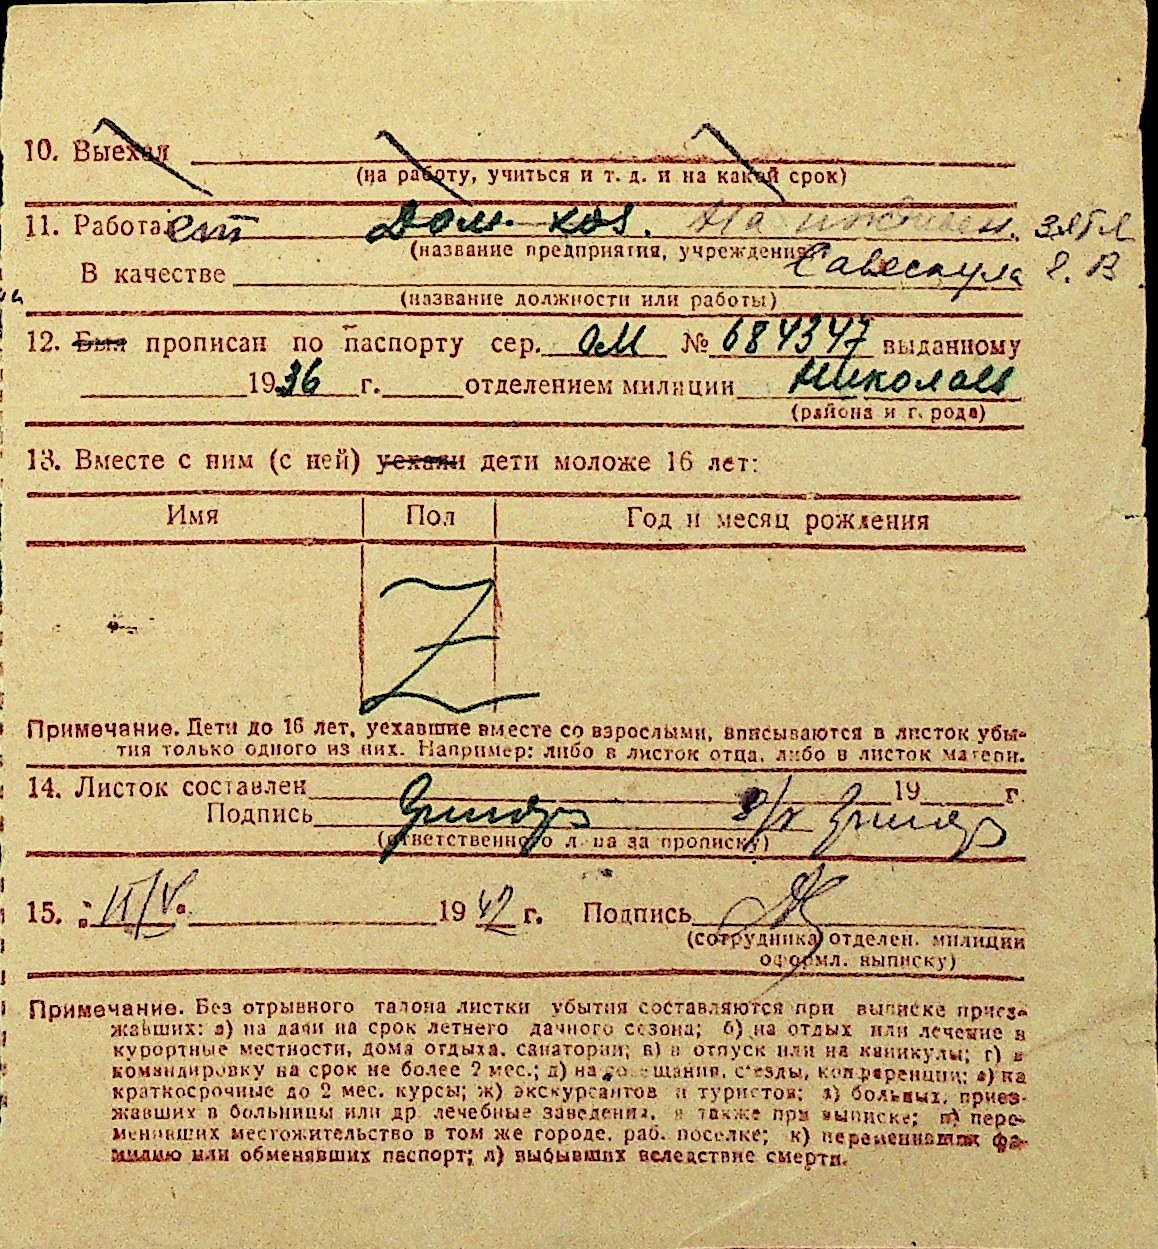 10. Выехал
(на работу, учиться и т. д. и на какой срок)
11. Работает Дом. хоз. На иждивен. зятя
(название предприятия, учреждения)
В качестве Савескула
(название должности или работы)
12. Был прописан по паспорту сер. ОМ № 684347 выданному
1936 г. отделением милиции Николаев
(района и города)
13. Вместе с ним (с ней) уехали дети моложе 16 лет:
Имя Пол Год и месяц рождения
Z
Примечание. Дети до 16 лет, уехавшие вместе со взрослыми, вписываются в листок убы-
тия только одного из них. Например: либо в листок отца, либо в листок матери.
14. Листок составлен 19 г.
Подпись
(ответственного лица за прописку)
15. " " 19 г. Подпись
(сотрудника отделен. милиции
оформл. выписку)
Примечание. Без отрывного талона листки убытия составляются при выписке приез-
жавших: а) на дачи на срок летнего дачного сезона; б) на отдых или лечение в
курортные местности, дома отдыха, санатории; в) в отпуск или на каникулы; г) в
командировку на срок не более 2 мес.; д) на совещания, съезды, конференции; е) на
краткосрочные до 2 мес. курсы; ж) экскурсантов и туристов; з) больных, приез-
жавших в больницы или др. лечебные заведения, а также при выписке; и) пере-
менивших местожительство в том же городе, раб. поселке; к) переменивших фа-
милию или обменявших паспорт; л) выбывших вследствие смерти.